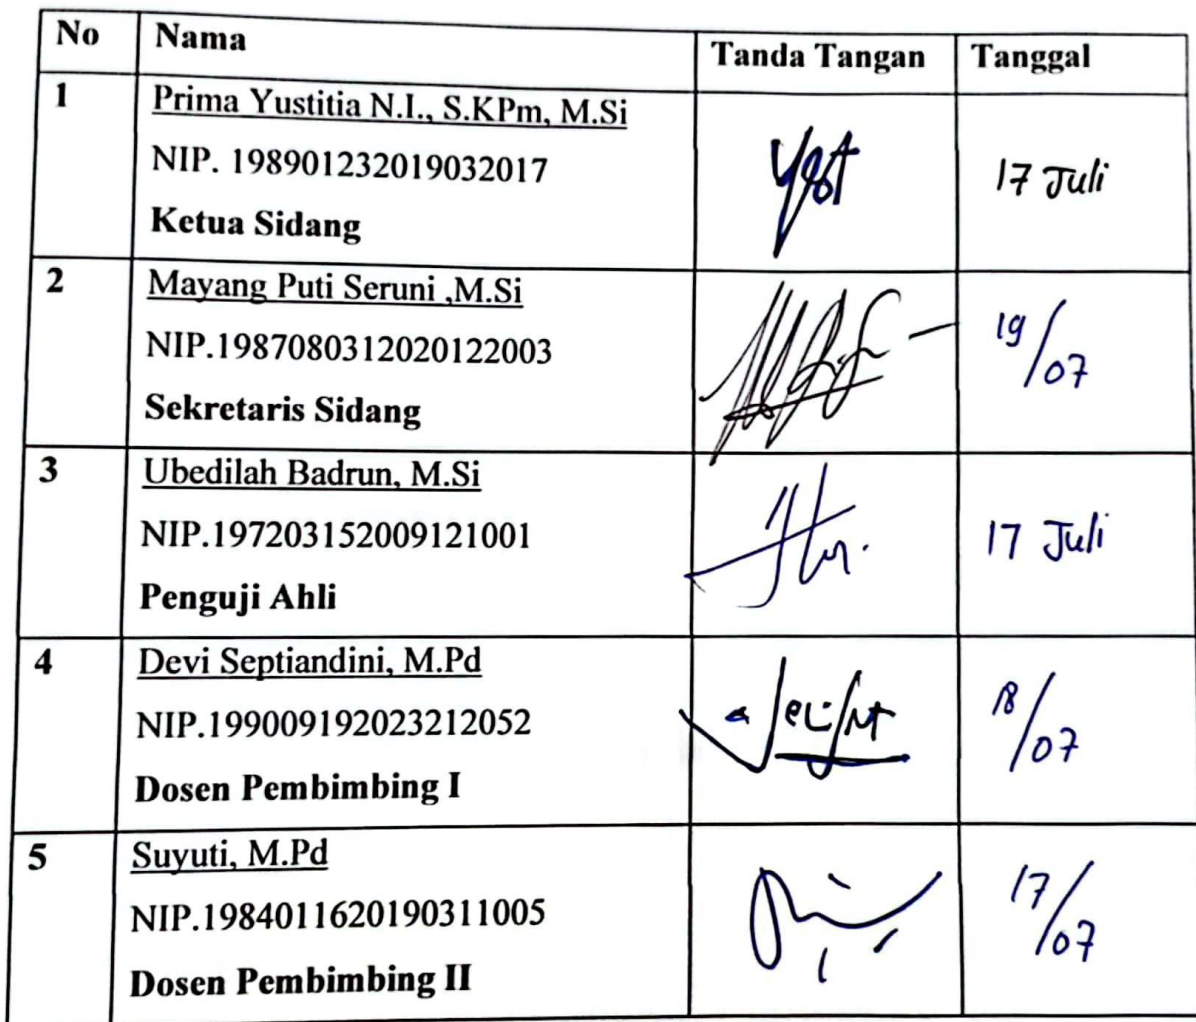 No Nama Tanda Tangan Tanggal
1 Prima Yustitia N.I., S.KPm, M.Si
NIP. 198901232019032017 17 Juli
Ketua Sidang
2 Mayang Puti Seruni ,M.Si
NIP.1987080312020122003 19/07
Sekretaris Sidang
3 Ubedilah Badrun, M.Si
NIP.197203152009121001 17 Juli
Penguji Ahli
4 Devi Septiandini, M.Pd
NIP.199009192023212052 18/07
Dosen Pembimbing I
5 Suyuti, M.Pd
NIP.1984011620190311005 17/07
Dosen Pembimbing II